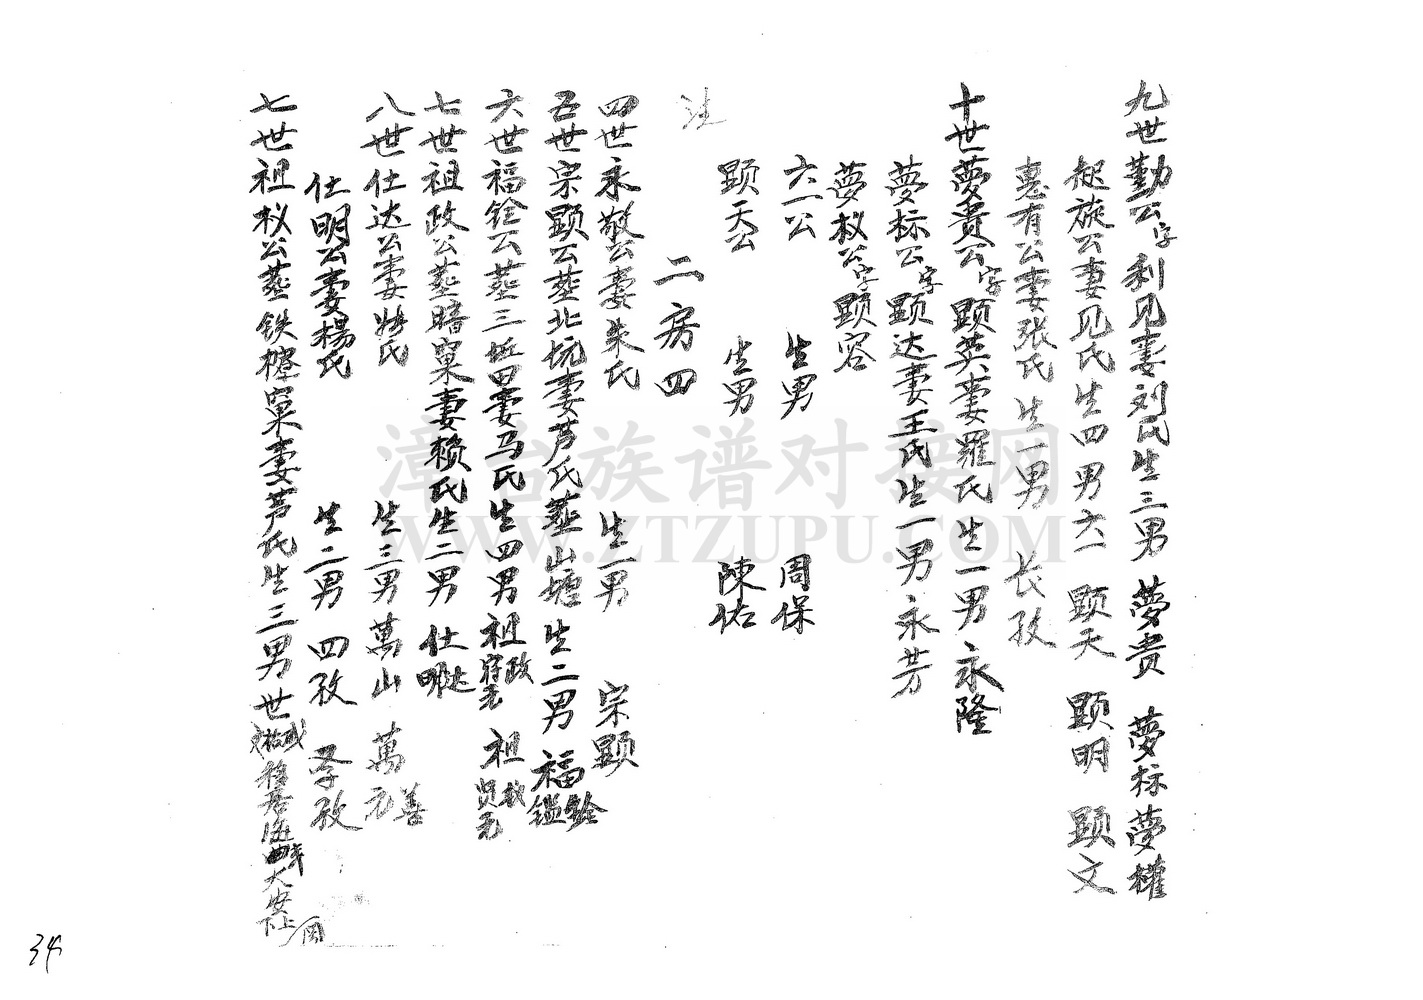 九世勤公字利见妻刘氏生三男 夢贵 夢标夢權
起旋公妻见氏生四男六一 顕天 顕明 顕文
惠有公妻张氏 生一男 长孜
十世夢貴公字顕英妻羅氏生一男永隆
夢标公字顕达妻王氏生一男永芳
夢权公字顕容
六一公 生男 周保
顕天公 生男 陳佑
二房四
四世永敬公妻朱氏 生一男 宗顕
五世宗顕公葬北坑妻芦氏葬山塘生二男 福銓鑑
六世福銓公葬三坵田妻马氏生四男祖政 祖 贤
七世祖政公葬暗窠妻赖氏生二男 仕达明
八世仕达公妻 氏 生三男萬山 萬善元
仕明公妻楊氏 生二男 四孜 孝孜
七世祖权公葬铁 窠妻芦氏生三男世 移居 大安上下
34
漳台族谱对接网
WWW.ZTZUPU.COM